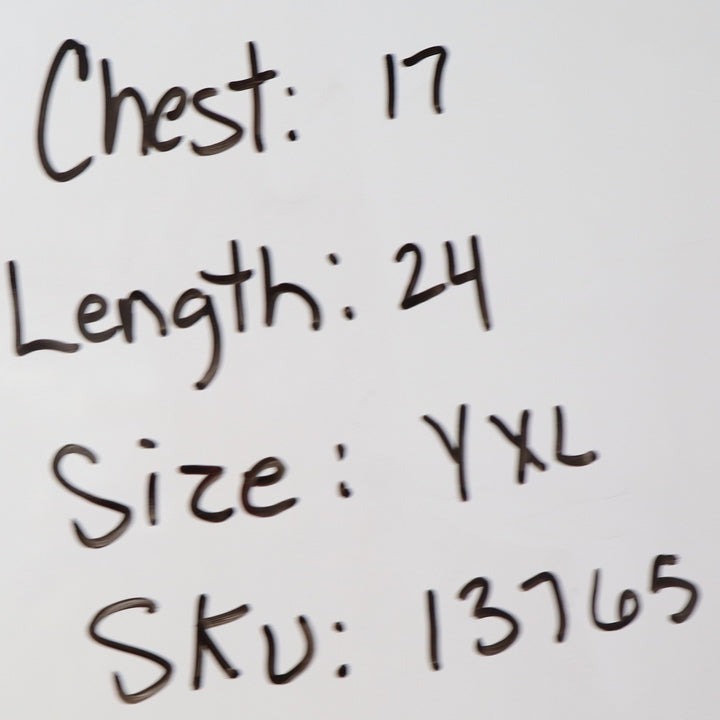 Chest: 17
Length: 24
Size: YXL
SKU: 13765